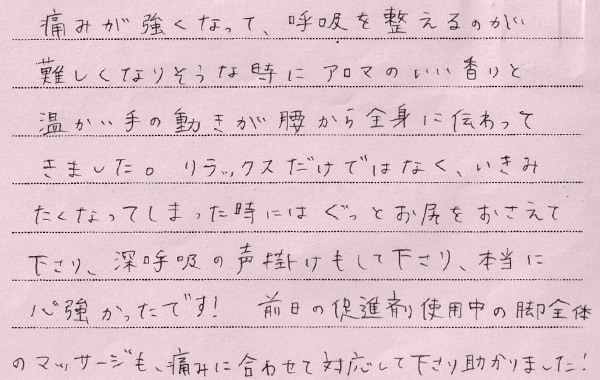 痛みが強くなって、呼吸を整えるのが
難しくなりそうな時にアロマのいい香りと
温かい手の動きが腰から全身に伝わって
きました。リラックスだけではなく、いきみ
たくなってしまった時にはぐっとお尻をおさえて
下さり、深呼吸の声掛けもして下さり、本当に
心強かったです! 前日の促進剤使用中の脚全体
のマッサージも、痛みに合わせて対応して下さり助かりました!